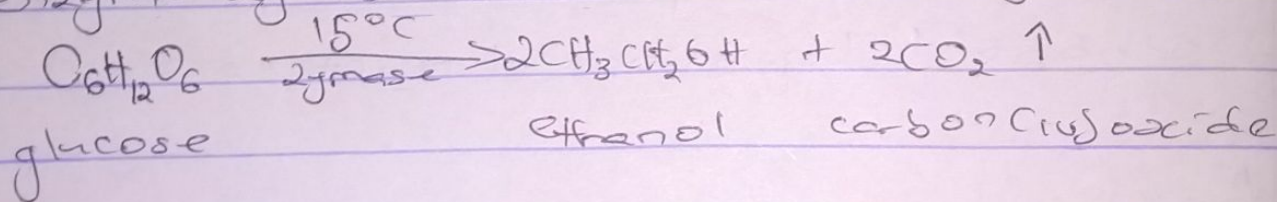 C₆H₁₂O₆ 15°C zymase > 2CH₃CH₂OH + 2CO₂ ↑
glucose ethanol carbon(iv)oxide